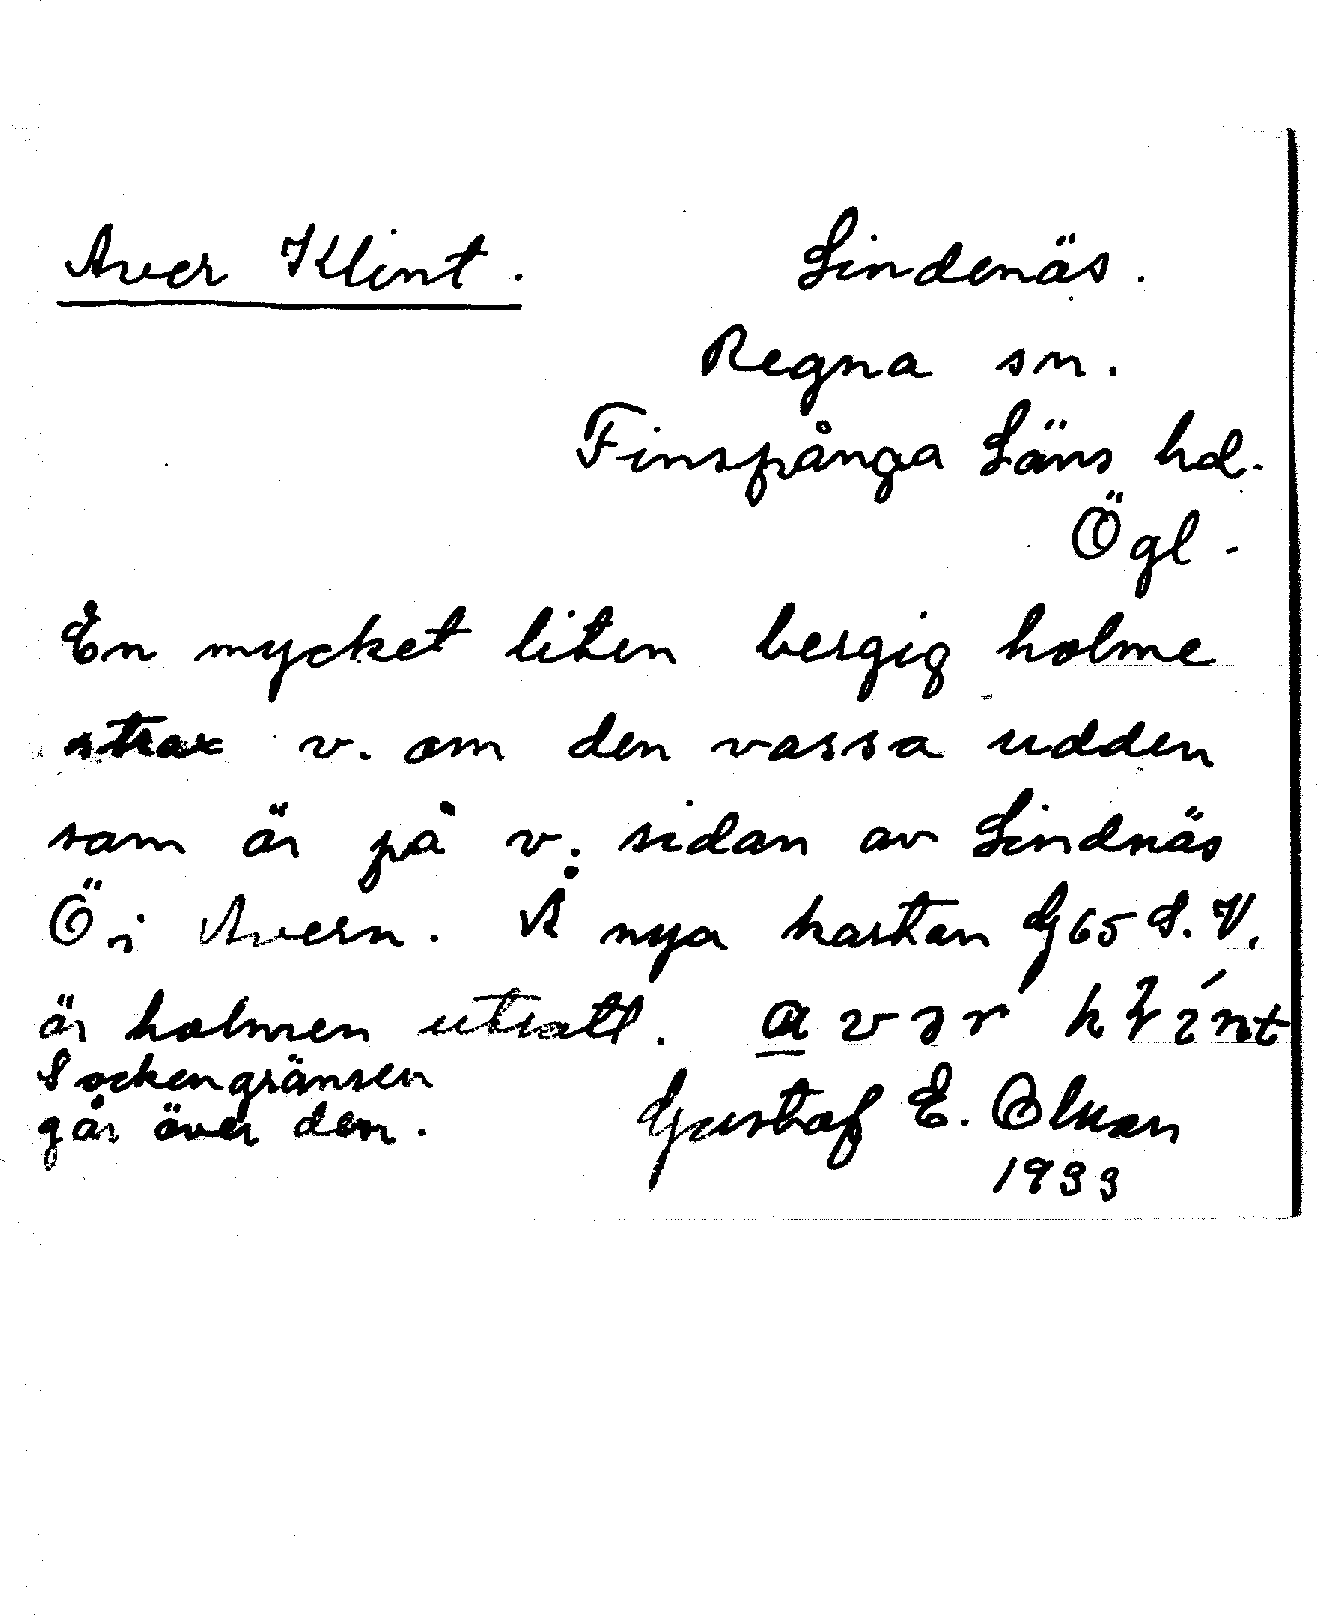 Aver Klint. Lindenäs.
Regna sn.
Finspånga Läns hd.
Ögl.
En mycket liten bergig holme
strax v. om den vassa udden
som är på v. sidan av Lindnäs
Ö i Avern. Å nya kartan G 65 S. V.
är holmen utsatt.
Sockengränsen
går över den.
Gustaf E. Olson
1933